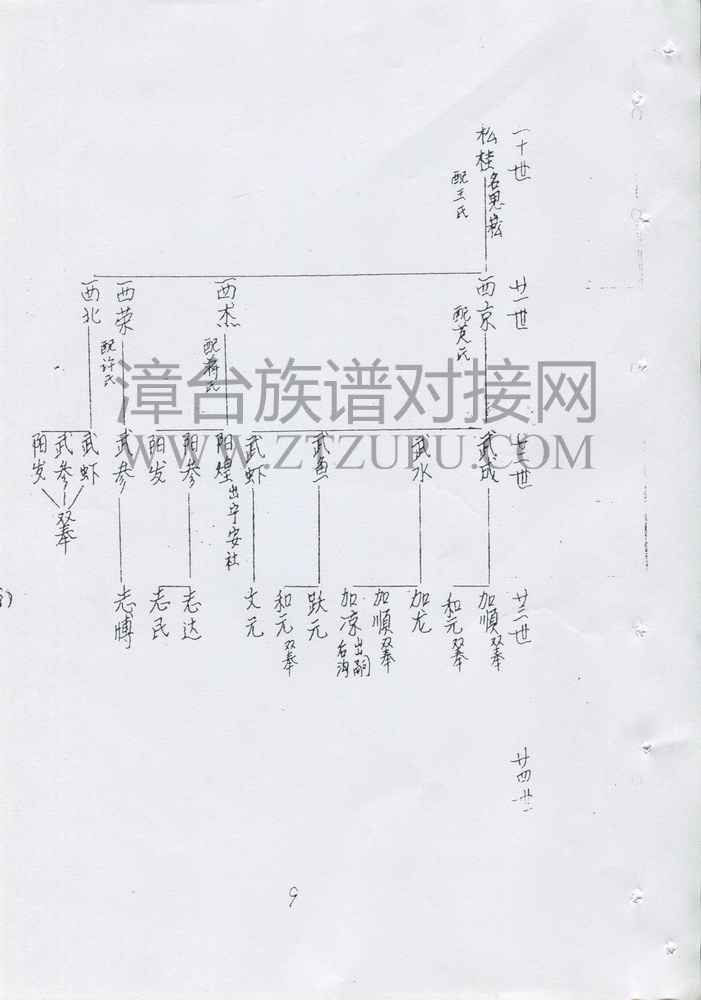 一十世
松桂 名思崧
配王氏
廿一世
西京
配莫氏
西杰
配蒋氏
西荣
配许氏
西北
漳台族谱对接网
WWW.ZTZUPU.COM
廿二世
武成
武水
武鱼
武虾
阳煌 出宁安社
阳参
阳发
武参
武虾
武参
阳发
双奉
廿三世
加顺 双奉
和元 双奉
加龙
加顺 双奉
加凉 出嗣右沟
跃元
和元 双奉
文元
志达
志民
志博
廿四世
9